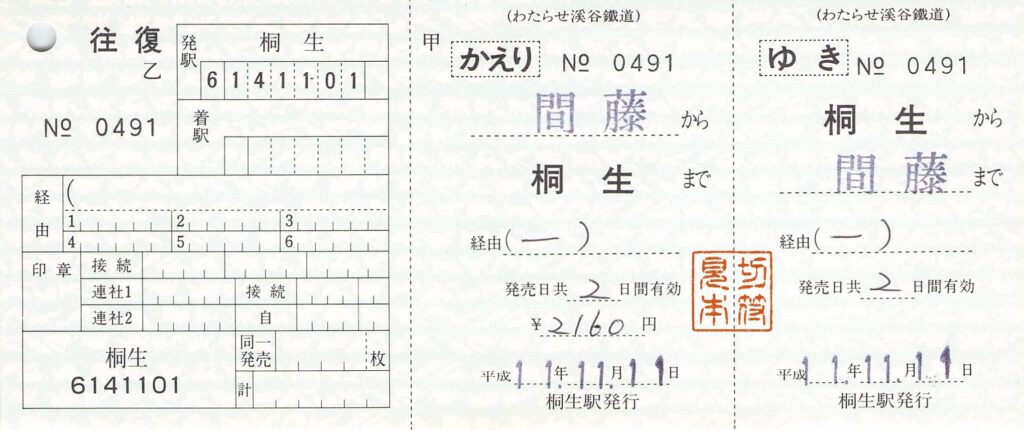 往復
乙
No 0491
発駅 桐生
6141101
着駅
経由 (
1 2 3
4 5 6
印章 接続
連社1 接続
連社2 自
桐生
6141101
同一発売 枚
計
(わたらせ溪谷鐵道)
甲
かえり No 0491
間藤から
桐生まで
経由(ー)
発売日共2日間有効
¥2160円
平成11年11月11日
桐生駅発行
(わたらせ溪谷鐵道)
ゆき No 0491
桐生から
間藤まで
経由(ー)
発売日共2日間有効
平成11年11月11日
桐生駅発行
切符
見本